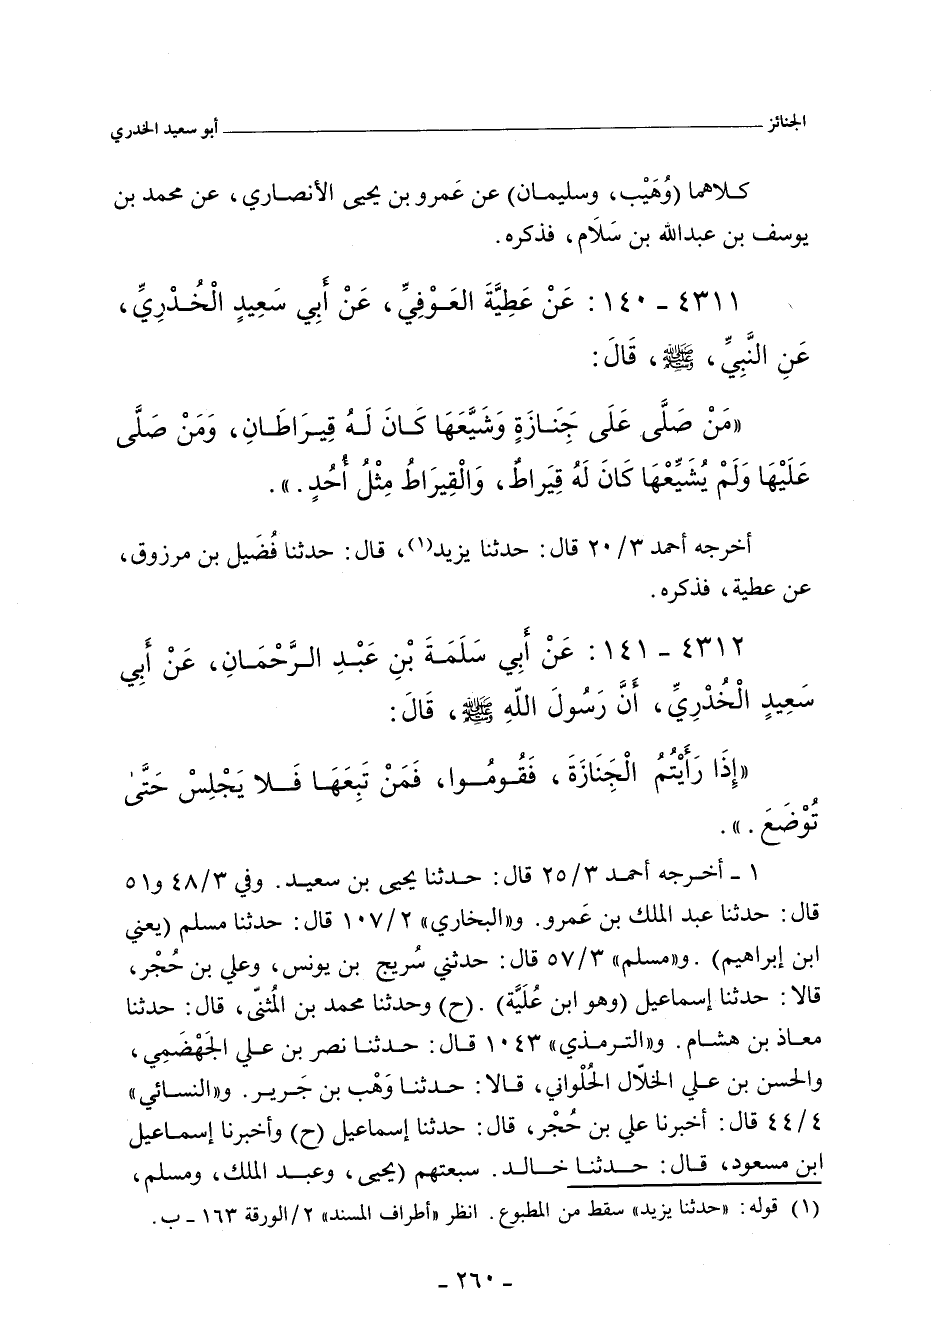 الجنائز ــــــــــــ أبو سعيد الخدري
كلاهما (وُهَيْب، وسليمان) عن عَمرو بن يحيى الأنصاري، عن محمد بن
يوسف بن عبدالله بن سَلَام، فذكره.
٤٣١١ ـ ١٤٠: عَنْ عَطِيَّةَ العَوْفِيِّ، عَنْ أَبِي سَعِيدٍ الْخُدْرِيِّ،
عَنِ النَّبِيِّ، ﷺ، قَالَ:
«مَنْ صَلَّى عَلَى جَنَازَةٍ وَشَيَّعَهَا كَانَ لَهُ قِيرَاطَانِ، وَمَنْ صَلَّى
عَلَيْهَا وَلَمْ يُشَيِّعْهَا كَانَ لَهُ قِيرَاطٌ، وَالْقِيرَاطُ مِثْلُ أُحُدٍ.».
أخرجه أحمد ٢٠/٣ قال: حدثنا يزيد(١)، قال: حدثنا فُضَيل بن مرزوق،
عن عطية، فذكره.
٤٣١٢ ـ ١٤١: عَنْ أَبِي سَلَمَةَ بْنِ عَبْدِ الرَّحْمَانِ، عَنْ أَبِي
سَعِيدٍ الْخُدْرِيِّ، أَنَّ رَسُولَ اللّهِ ﷺ، قَالَ:
«إِذَا رَأَيْتُمُ الْجَنَازَةَ، فَقُومُوا، فَمَنْ تَبِعَهَا فَلا يَجْلِسْ حَتَّى
تُوْضَعَ.».
١ ـ أخرجه أحمد ٢٥/٣ قال: حدثنا يحيى بن سعيد. وفي ٤٨/٣ و٥١
قال: حدثنا عبد الملك بن عَمرو. و«البخاري» ١٠٧/٢ قال: حدثنا مسلم (يعني
ابن إبراهيم) .و«مسلم» ٥٧/٣ قال: حدثني سُريج بن يونس، وعلي بن حُجْر،
قالا: حدثنا إسماعيل (وهو ابن عُلَيَّة) .(ح) وحدثنا محمد بن المُثنّى، قال: حدثنا
معاذ بن هشام. و«الترمذي» ١٠٤٣ قال: حدثنا نصر بن علي الجَهْضَمِي،
والحسن بن علي الخلّال الحُلْواني، قالا: حدثنا وَهْب بن جَرير. و«النسائي»
٤٤/٤ قال: أخبرنا علي بن حُجْر، قال: حدثنا إسماعيل (ح) وأخبرنا إسماعيل
ابن مسعود، قال: حدثنا خالد. سبعتهم (يحيى، وعبد الملك، ومسلم،
(١) قوله: «حدثنا يزيد» سقط من المطبوع. انظر «أطراف المسند» ٢/الورقة ١٦٣ ـ ب.
ـ ٢٦٠ ـ